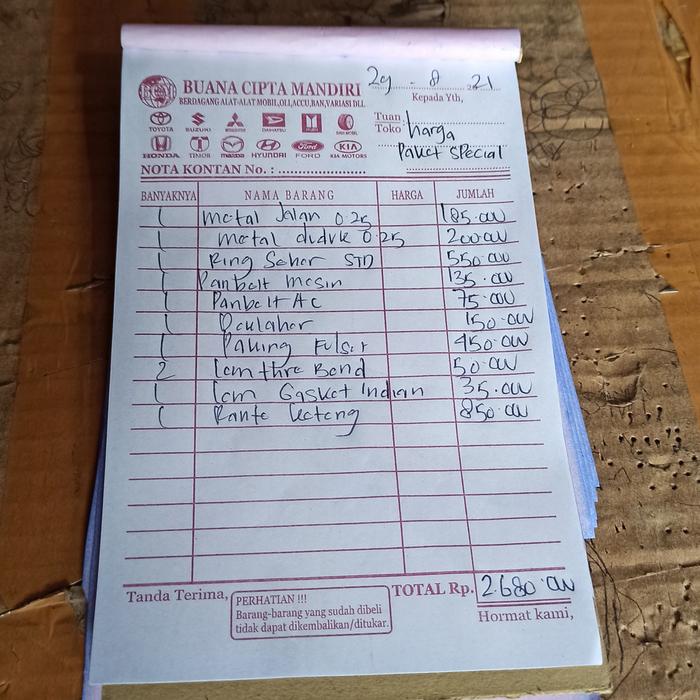 BUANA CIPTA MANDIRI
BERDAGANG ALAT-ALAT MOBIL,OLI,ACCU,BAN,VARIASI DLL.
29 - 8 2021
Kepada Yth,
TOYOTA SUZUKI MITSUBISHI DAIHATSU ISUZU
HONDA TIMOR mazda HYUNDAI FORD KIA MOTORS
Tuan
Toko : harga
Paket Special
NOTA KONTAN No. : ........................
BANYAKNYA NAMA BARANG HARGA JUMLAH
1 Metal Jalan 0.25 185.000
1 metal duduk 0.25 200000
1 Ring Seher STD 550.000
1 Panbelt mesin 135.000
1 Panbelt AC 75.000
1 150.000
1 Paking Fulset 450.000
2 Lem thre Bond 50.000
1 Lem Gasket Indian 35.000
1 Rante Keteng 850.000
Tanda Terima,
PERHATIAN !!!
Barang-barang yang sudah dibeli
tidak dapat dikembalikan/ditukar.
TOTAL Rp. 2.680.000
Hormat kami,